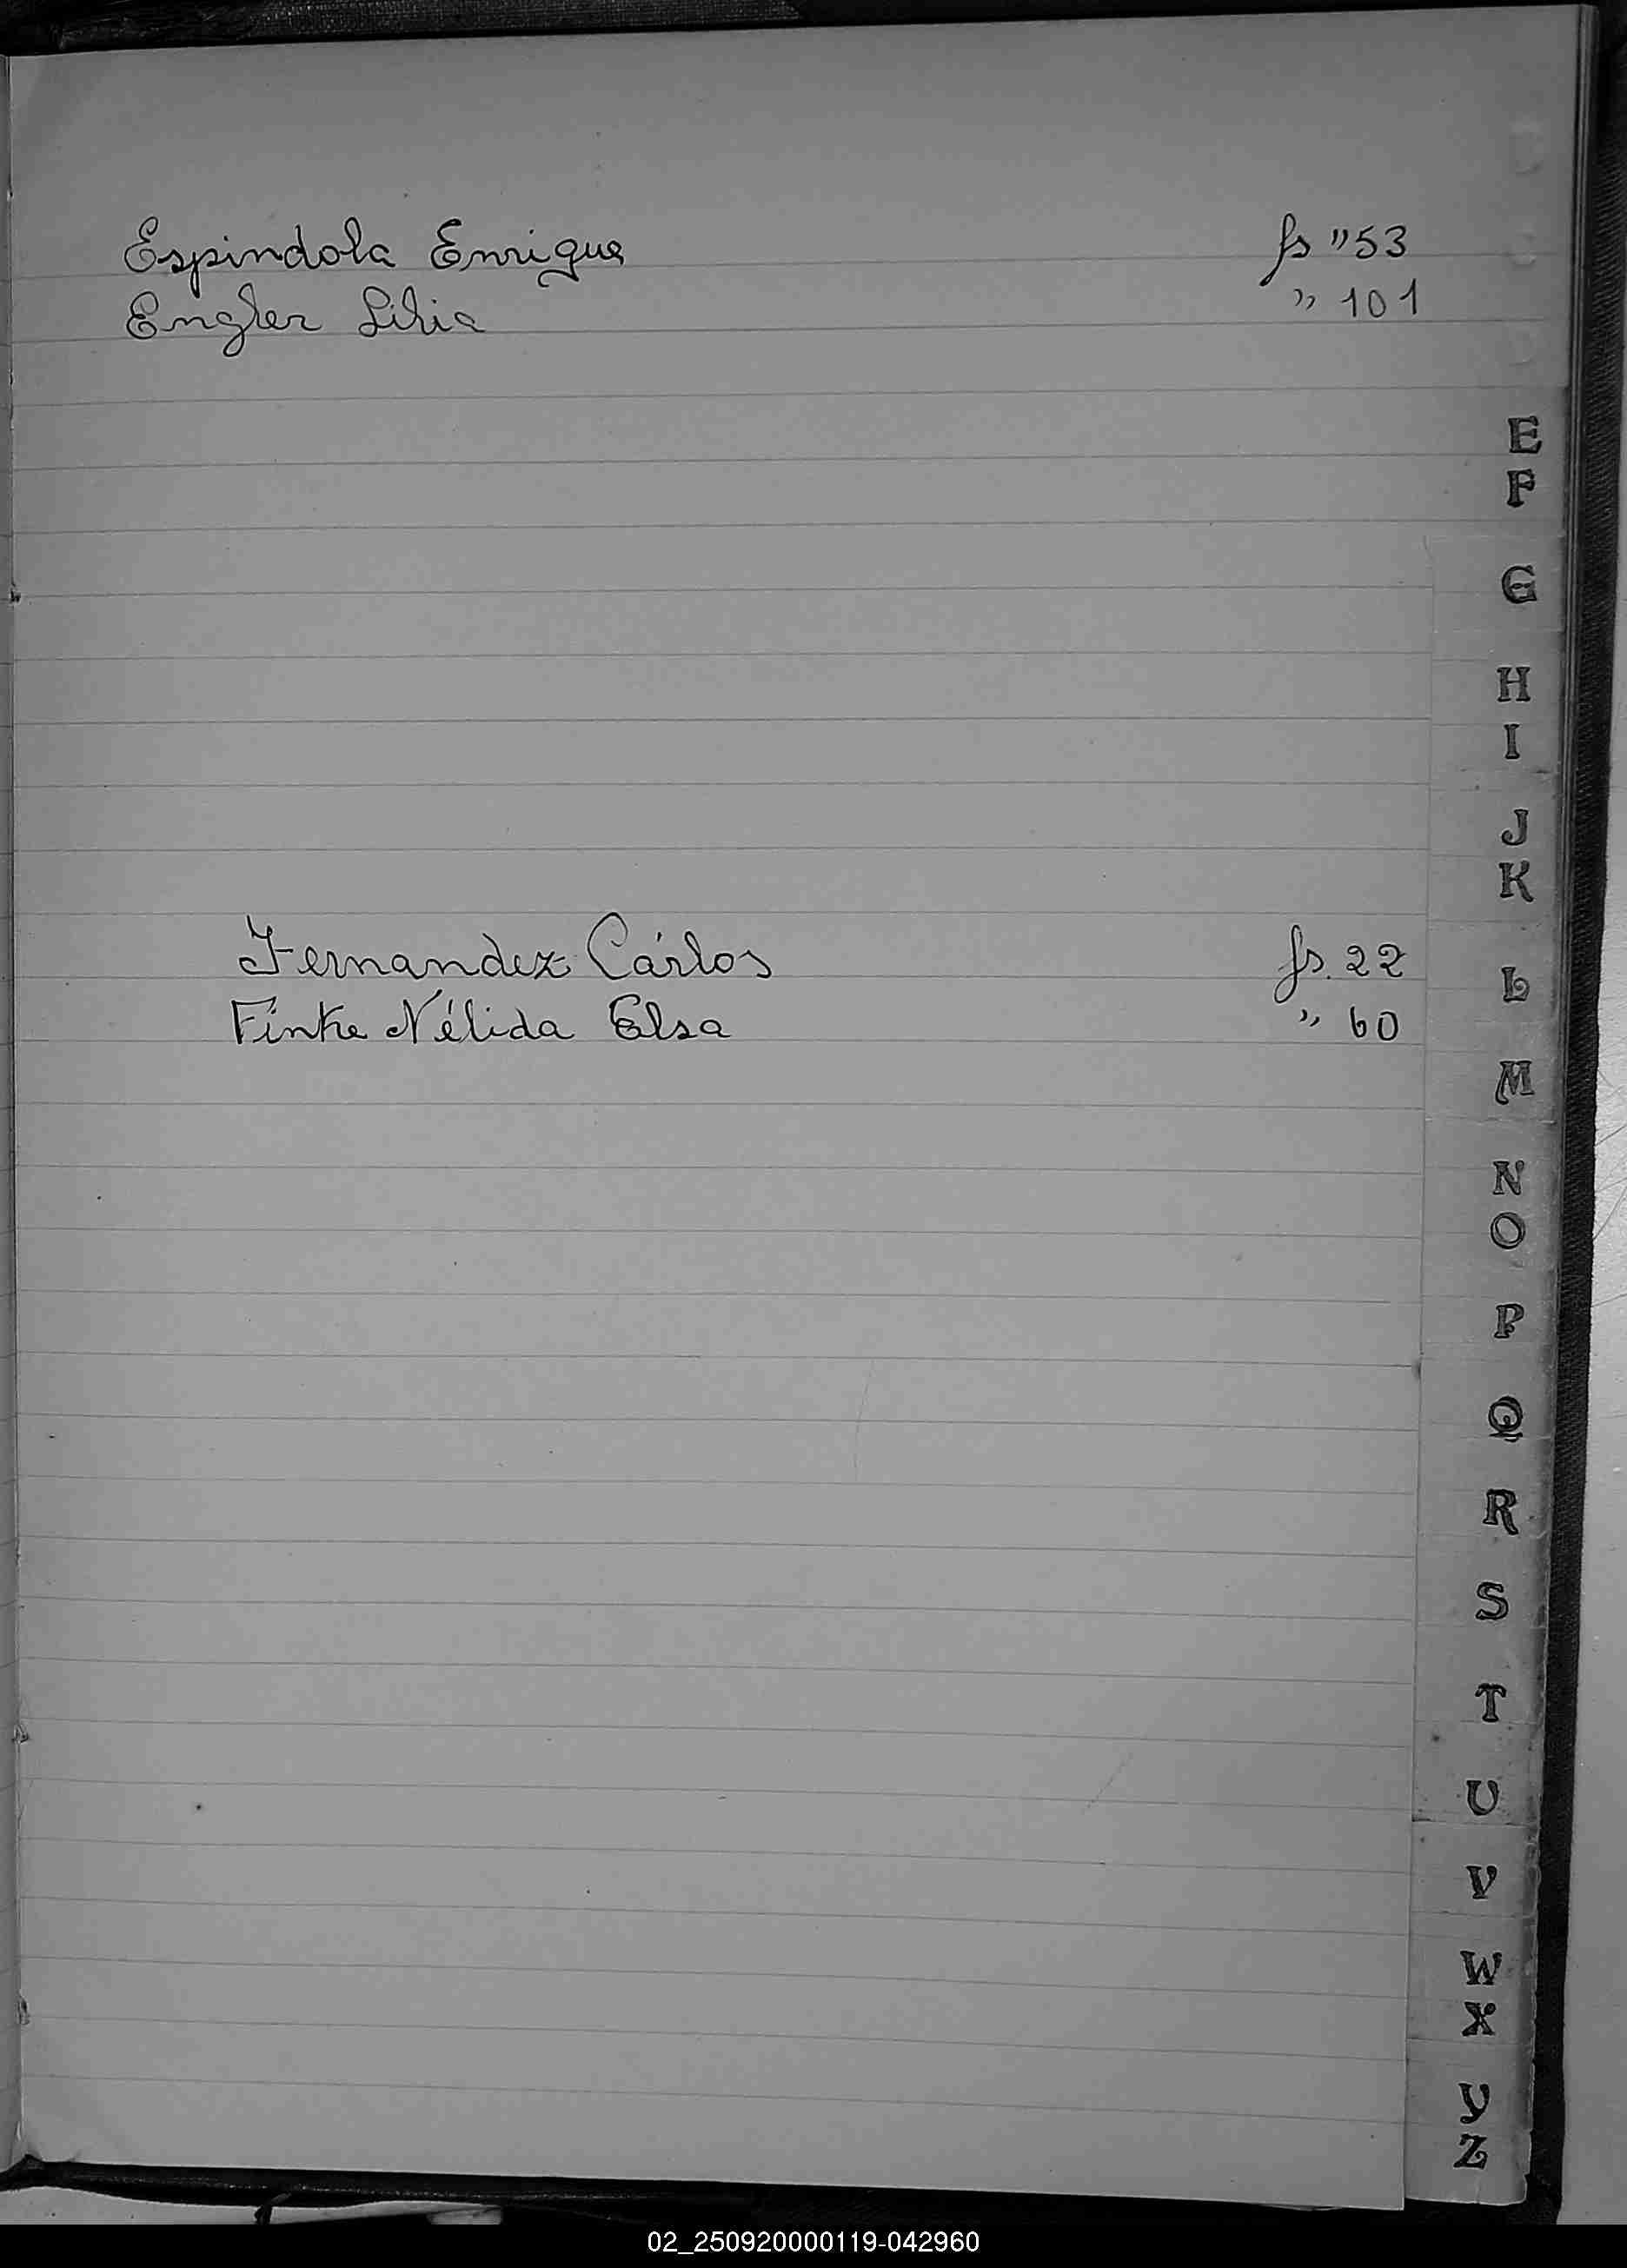 Espindola Enrique fs " 53
Engler Lilia " 101
E
F
G
H
I
J
K
Fernandez Cárlos fs. 22
L
Finke Nélida Elsa " 60
M
N
O
P
Q
R
S
T
U
V
W
X
Y
Z
02_250920000119-042960